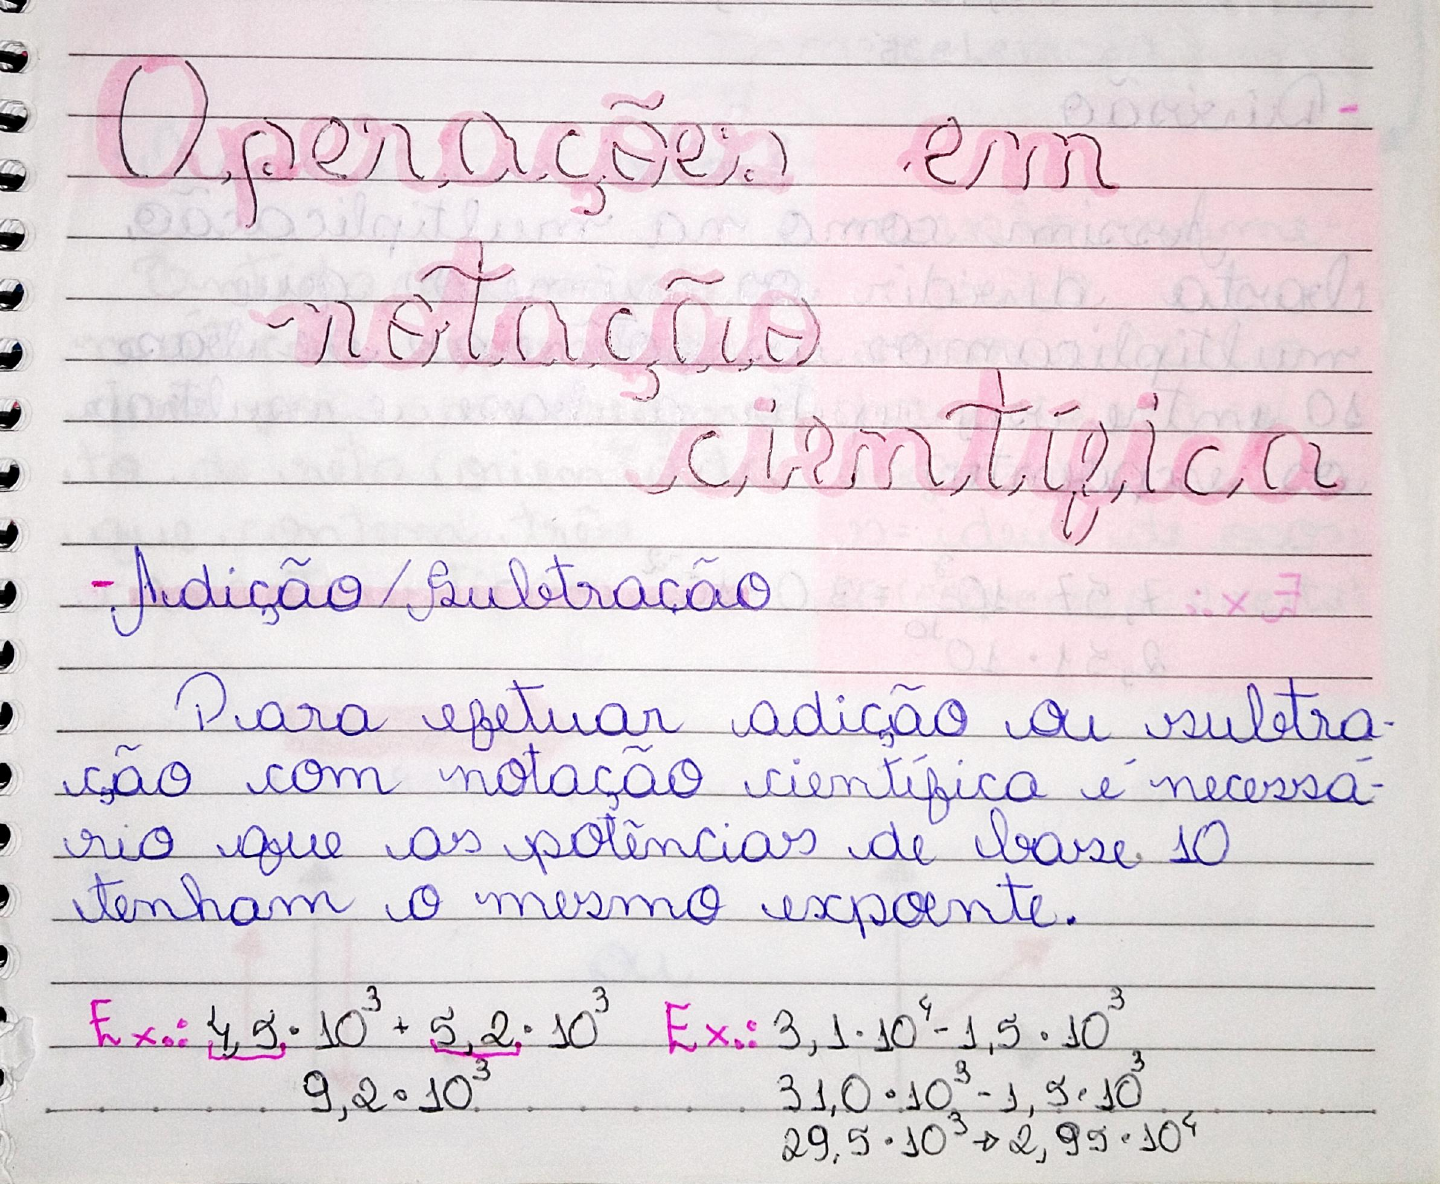 Operações em
notação
científica
- Adição/Subtração
Para efetuar adição ou subtra-
ção com notação científica é necessá-
rio que as potências de base 10
tenham o mesmo expoente.
Ex.: 4,5·10³ + 5,2·10³ Ex.: 3,1·10⁴-1,5·10³
9,2·10³ 31,0·10³-1,5·10³
29,5·10³→2,95·10⁴